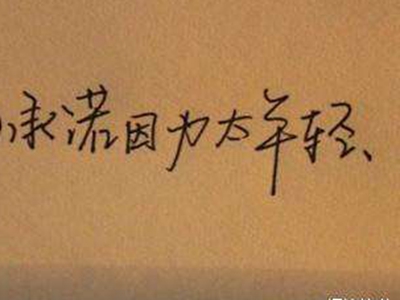 承诺因为太年轻、